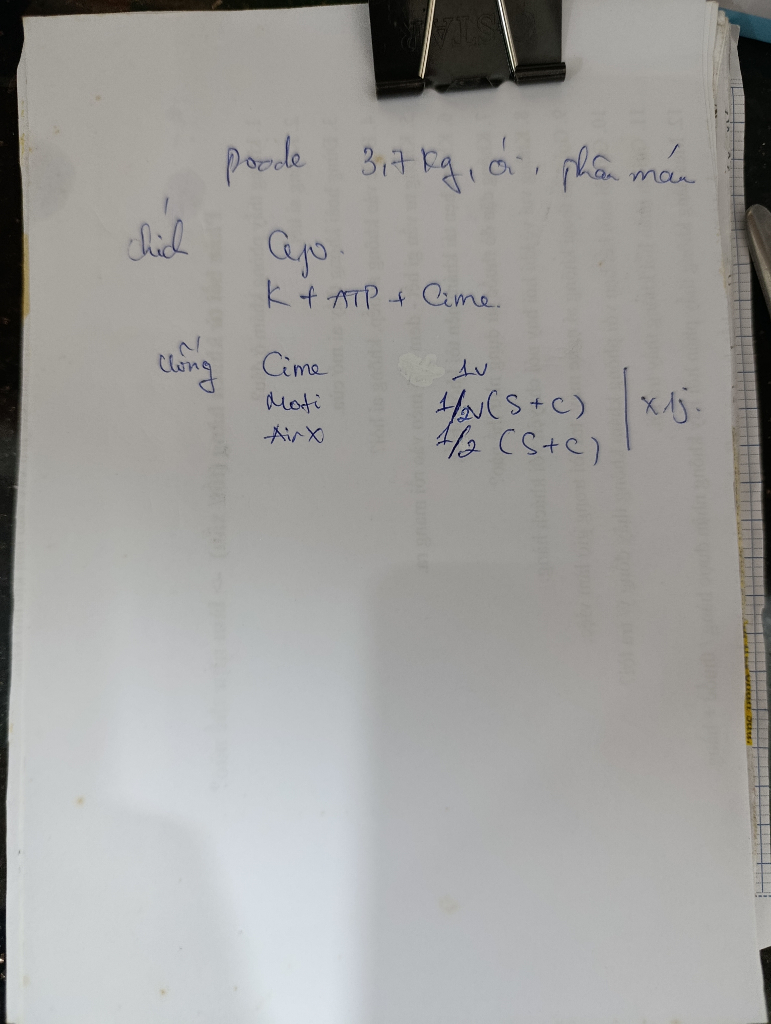 poode 3,7 kg, ói, phân máu
chích
K + ATP + Cime.
uống Cime 1v
Moti 1/2v (S + C)
AirX 1/2 (S + C)
x 1j.